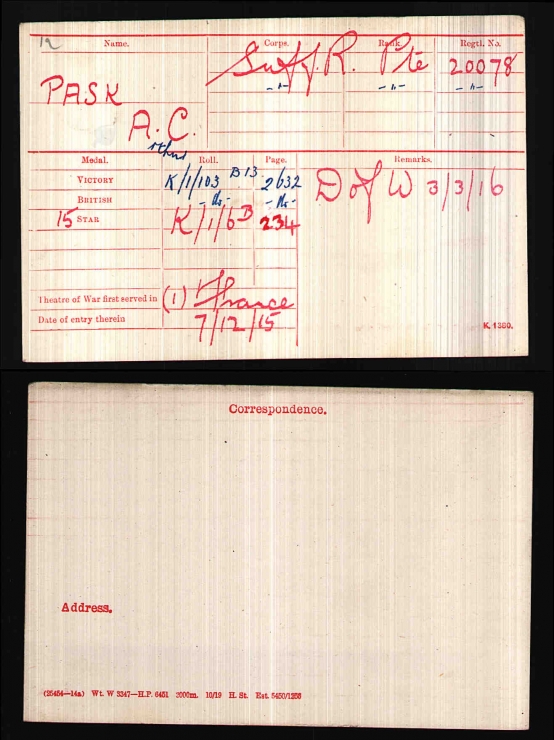 12
Name. Corps. Rank. Regtl. No.
PASK Suff. R. Pte 20078
A. C. -"- -"- -"-
rthur
Medal. Roll. Page. Remarks.
VICTORY K/1/103 B13 2632 D of W 3/3/16
BRITISH -do- -do-
15 STAR K/1/6B 234
Theatre of War first served in (1) France
Date of entry therein 7/12/15
K. 1380.
Correspondence.
Address.
(25454—14a) Wt. W 3347—H.P. 6451 2000m. 10/19 H. St. Est. 5450/1256